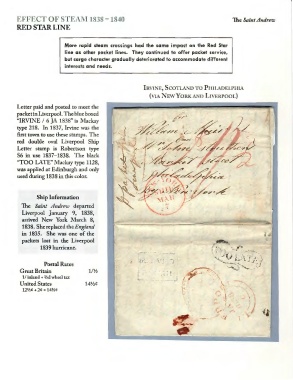 EFFECT OF STEAM 1838 – 1840
The Saint Andrew
RED STAR LINE
More rapid steam crossings had the same impact on the Red Star
line as other packet lines. They continued to offer packet service,
but cargo character gradually deteriorated to accommodate different
interests and needs.
IRVINE, SCOTLAND TO PHILADELPHIA
(VIA NEW YORK AND LIVERPOOL)
Letter paid and posted to meet the
packet in Liverpool. The blue boxed
"IRVINE / 6 JA 1838" is Mackay
type 218. In 1837, Irvine was the
first town to use these stamps. The
red double oval Liverpool Ship
Letter stamp is Robertson type
S6 in use 1837–1838. The black
"TOO LATE" Mackay type 1128,
was applied at Edinburgh and only
used during 1838 in this color.
Ship Information
The Saint Andrew departed
Liverpool January 9, 1838,
arrived New York March 8,
1838. She replaced the England
in 1835. She was one of the
packets lost in the Liverpool
1839 hurricane.
Postal Rates
Great Britain 1/½
1/ inland + ½d wheel tax
United States 14½¢
12½¢ + 2¢ = 14½¢
Philadelphia
New York
MAR